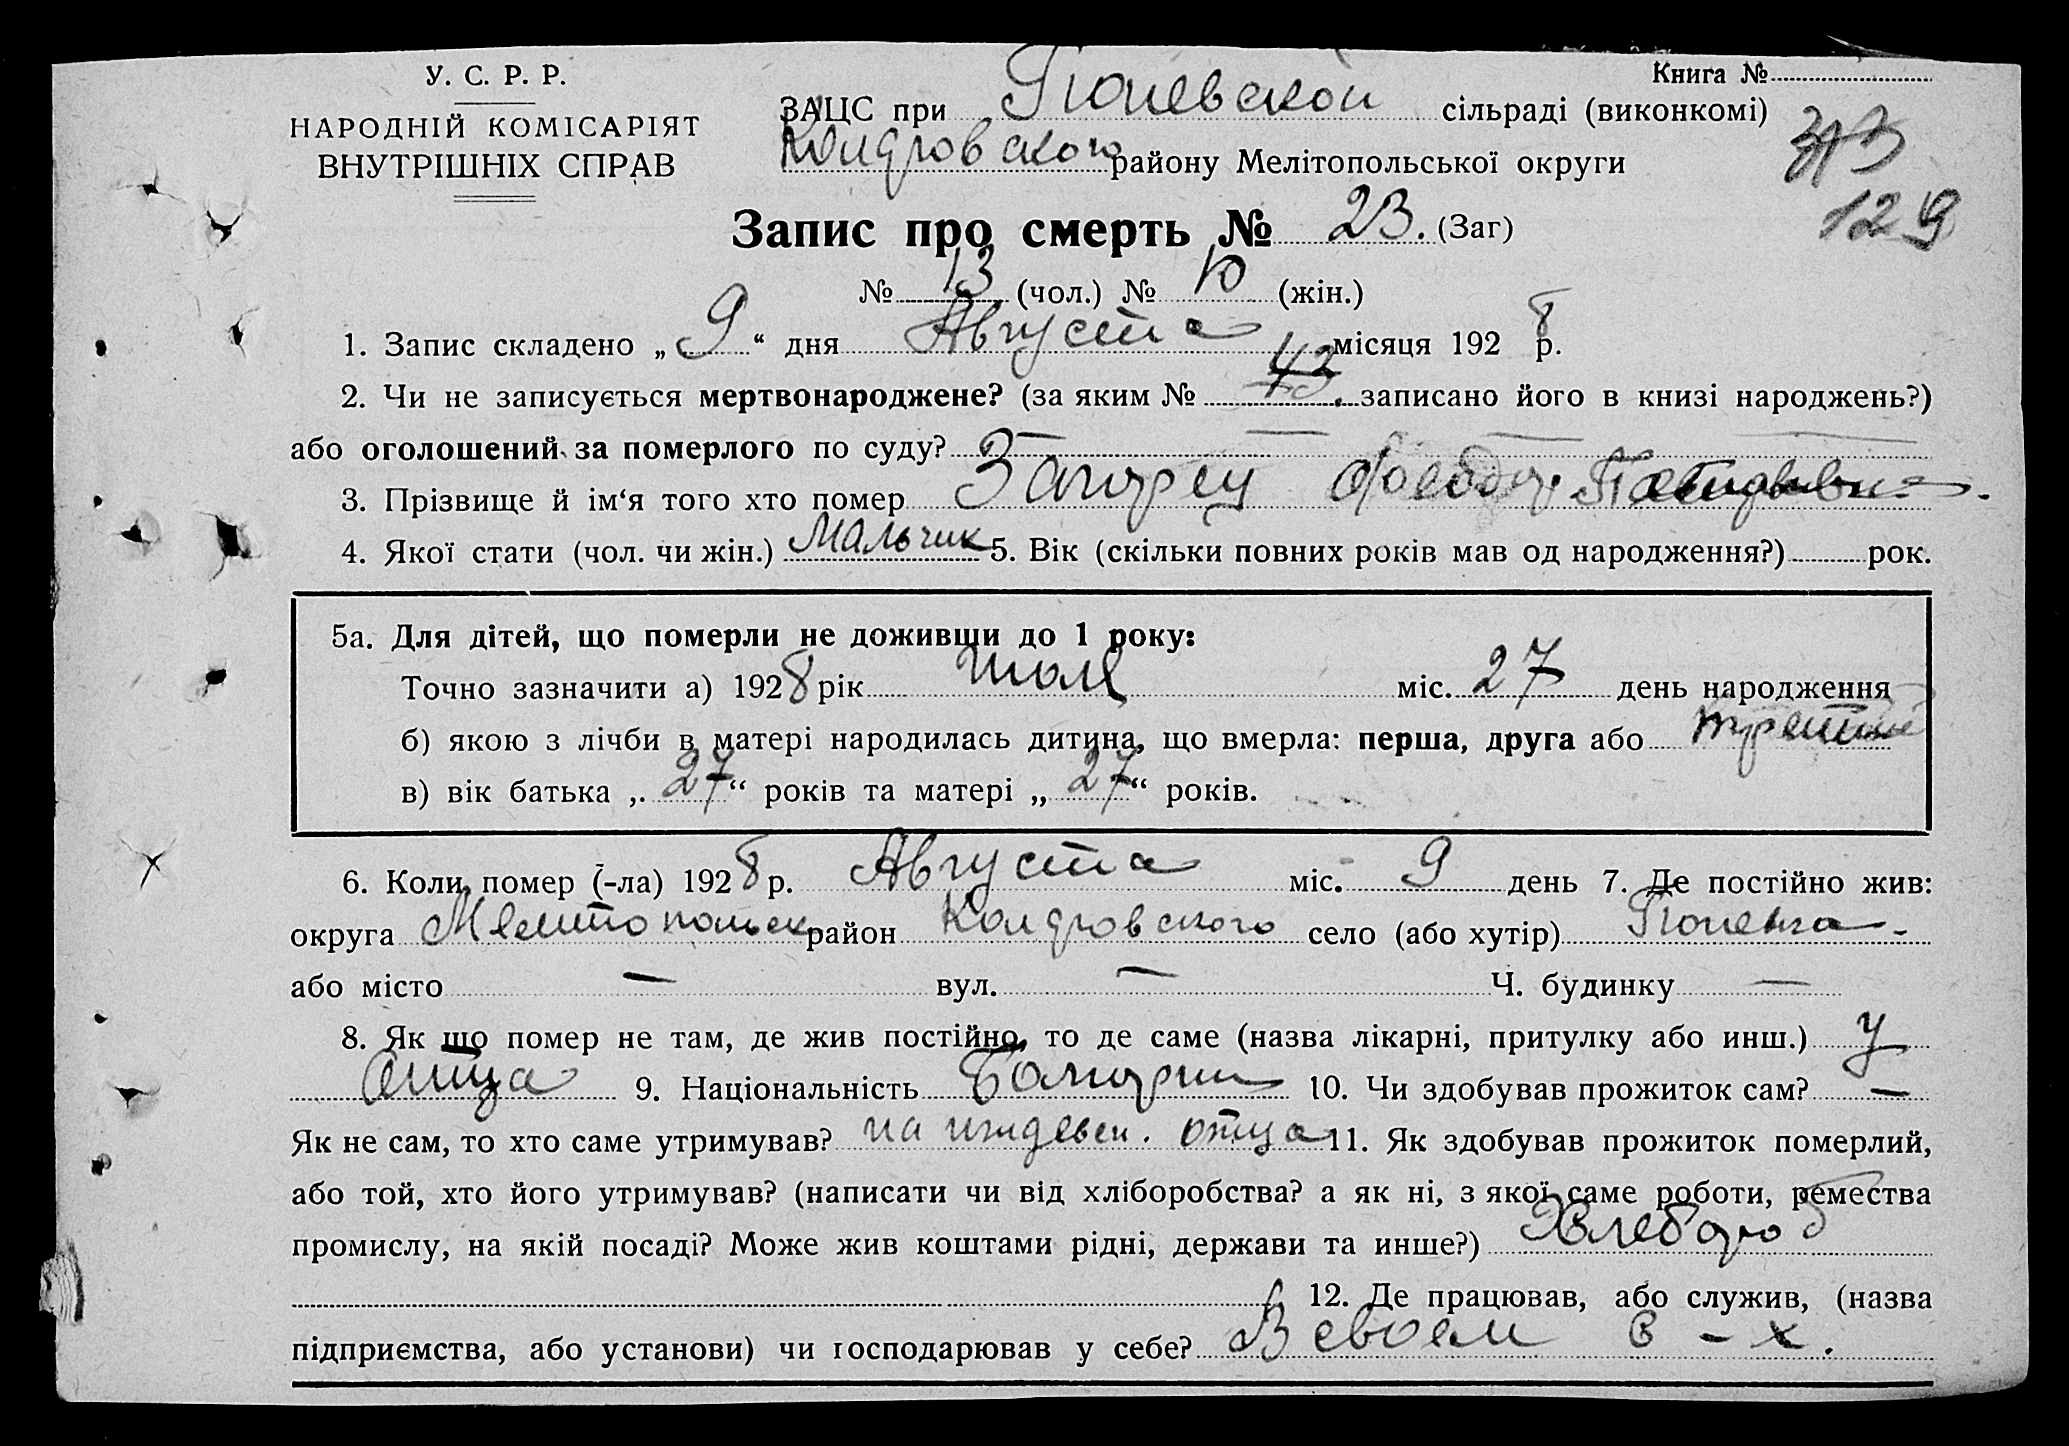 У. С. Р. Р.
НАРОДНІЙ КОМІСАРІЯТ
ВНУТРІШНІХ СПРАВ
Книга №
ЗАЦС при сільраді (виконкомі)
району Мелітопольської округи
129
Запис про смерть № 23. (Заг)
№ 13 (чол.) № 10 (жін.)
1. Запис складено „9“ дня Августа місяця 1928 р.
2. Чи не записується мертвонароджене? (за яким № 43 записано його в книзі народжень?)
або оголошений за померлого по суду?
3. Прізвище й ім‘я того хто помер Загорец Феодор
4. Якої стати (чол. чи жін.) Мальчик 5. Вік (скільки повних років мав од народження?) рок.
5а. Для дітей, що померли не доживши до 1 року:
Точно зазначити а) 1928 рік Июля міс. 27 день народження
б) якою з лічби в матері народилась дитина, що вмерла: перша, друга або третий
в) вік батька „27“ років та матері „27“ років.
6. Коли помер (-ла) 1928 р. Августа міс. 9 день 7. Де постійно жив:
округа Мелитопольск район село (або хутір)
або місто — вул. — Ч. будинку —
8. Як що помер не там, де жив постійно, то де саме (назва лікарні, притулку або инш.) у
отца 9. Національність Болгарин 10. Чи здобував прожиток сам? —
Як не сам, то хто саме утримував? на иждевен. отца 11. Як здобував прожиток померлий,
або той, хто його утримував? (написати чи від хліборобства? а як ні, з якої саме роботи, ремества
промислу, на якій посаді? Може жив коштами рідні, держави та инше?) Хлебороб
12. Де працював, або служив, (назва
підприємства, або установи) чи господарював у себе? В своем с-х.